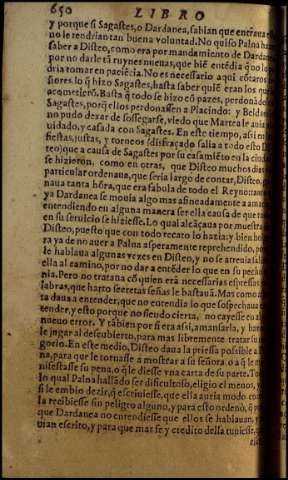 650 LIBRO
y porque si Sagastes, o Dardanea, sabian que entraua
no le rendrian tan buena voluntad. No quiso Palna ha
saber a Disteo, como era por mandamiento de Dardanea
por no darle tā ruynes nueuas, que biē entēdia q̄ no lo po
dria tomar en paciēcia. No es necessario aqui cōtaros
lo q̄ hizo Sagastes, basta saber quiē eran los que
acometierō. Basta q̄ todo se hizo en pazes, perdonādo
Sagastes, porq̄ ellos perdonassen a Placindo: y Beld
no pudo dexar de sossegarse, viēdo que Martea le auia
uidado, y casada con Sagastes. En este tiempo, assi en
fiestas, justas, y torneos (disfraçado salia a todo esto Dis
teo) que a causa de Sagastes por su casamiēto en la ciudad
se hizieron, como en otras, que Disteo muchos dias
particular ordenaua, que seria largo de contar, Disteo,
naua tanta hōra, que era fabula de todo el Reyno: tam
ya Dardanea se mouia algo mas afincadamente a amar
entendiendo en alguna manera ser ella causa de que to
en su seruicio se hiziesse. Lo qual alcāçaua por muestras
Disteo, puesto que con todo recato lo hazia: y bien ho
ra ya de no auer a Palna asperamente reprehendido, po
le hablaua algunas vezes en Disteo, y no se atreuia sali
ella al camino, por no dar a entēder lo que en su pecho
nia. Pero no tratana cō quien erā necessarias espressas
labras, que harto secretas señas le bastauā. Mas como
ta daua a entender, que no entendia lo que sospechaua
tender, y esto porque no siendo cierta, no cayesse en
nueuo error. Y tābien por si era assi, amansarla, y
le jugar al descubierto, para mas libremente tratar su
gorio. En este medio, Disteo daua la priessa possible a
na, para que le tornasse a mostrar a su señora, o a q̄ le
nifestasse su pena, o q̄ le diesse vna carta de su parte. To
lo qual Palna hallādo ser dificultoso, eligio el menos, y
si le embio dezir, q̄ escriuiesse, que ella auria modo com
la recibiesse sin peligro alguno, y para esto ordenò, q̄
que Dardanea no entendiesse que ellos se hablauan,
uian escrito, y para que mas fe y credito della tuuiesse,